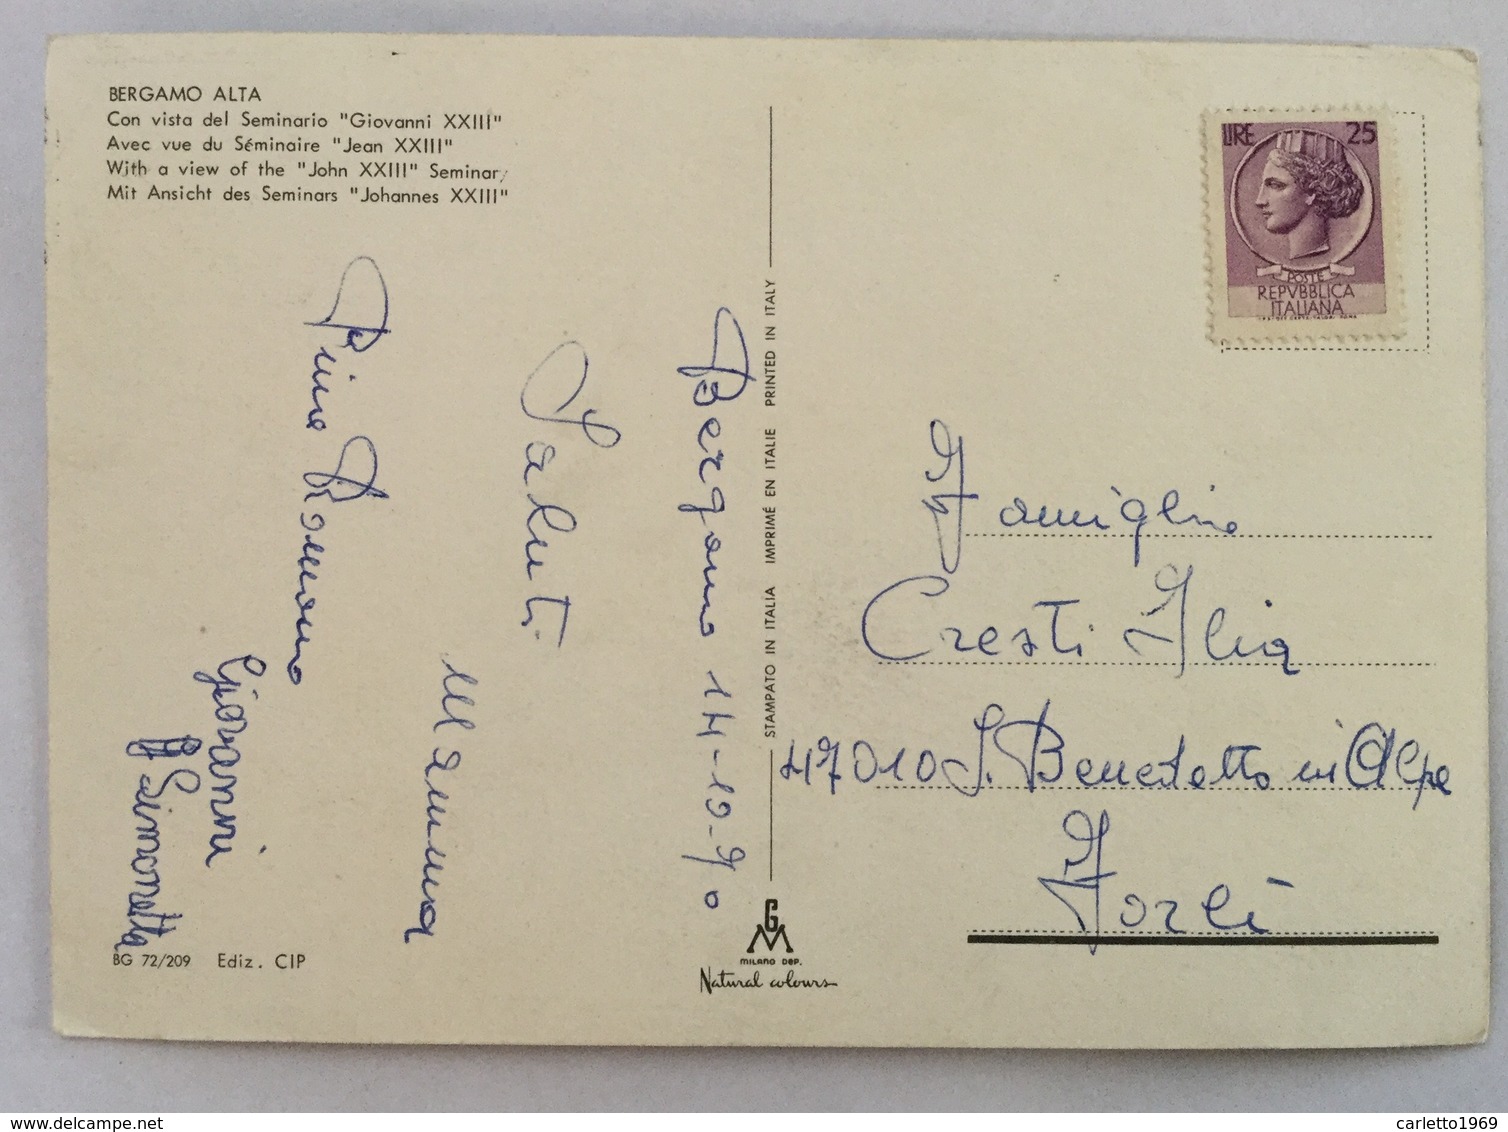 BERGAMO ALTA
Con vista del Seminario "Giovanni XXIII"
Avec vue du Séminaire "Jean XXIII"
With a view of the "John XXIII" Seminary
Mit Ansicht des Seminars "Johannes XXIII"
Bergamo 14-10-70
Saluti
Mamma
Pina Romano
Giovanni
Simonetta
BG 72/209 Ediz. CIP
STAMPATO IN ITALIA IMPRIMÉ EN ITALIE PRINTED IN ITALY
GM
MILANO DEP.
Natural colours
LIRE 25
POSTE
REPVBBLICA
ITALIANA
Famiglia
Cresti Ilia
47010 S. Benedetto in Alpe
Forlì
carletto1969